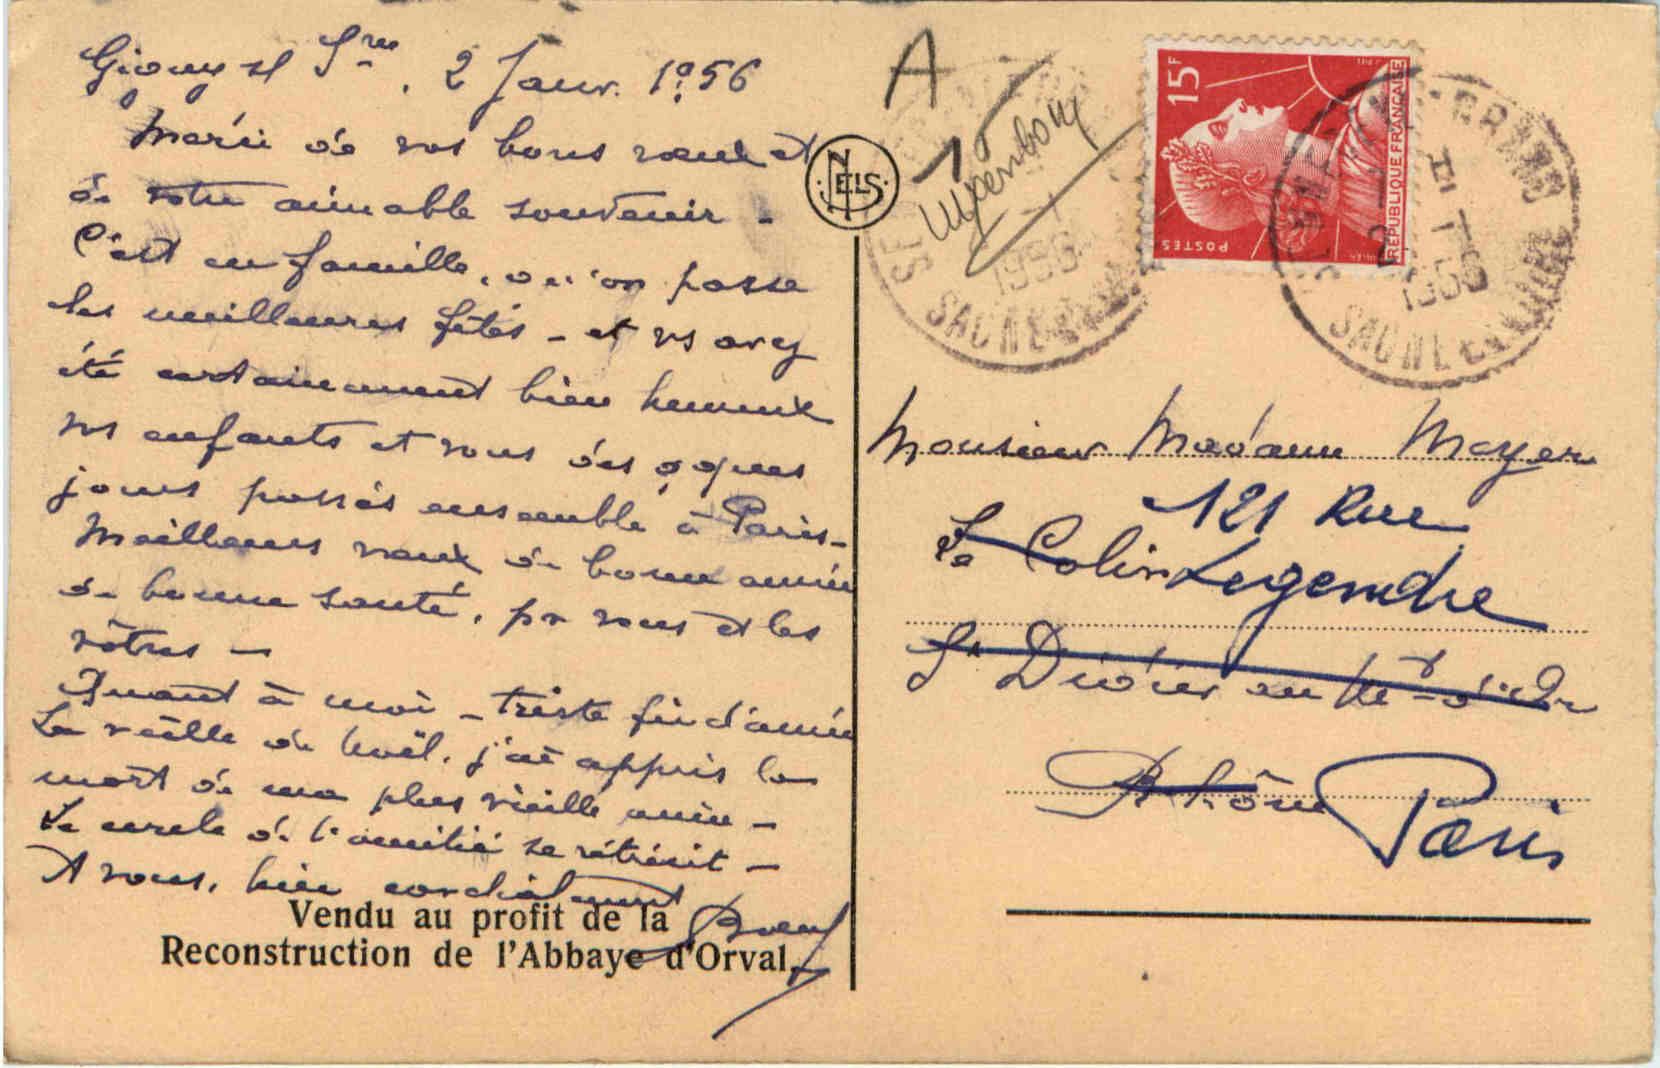 2 Janv. 1956
Merci de vos bons vœux et
de votre aimable souvenir -
C'est en famille, qu'on passe
les meilleures fêtes - et vs avez
été certainement bien heureux
vos enfants et vous des qques
jours passés ensemble à Paris -
Meilleurs vœux de bonne année
de bonne santé, pr vous et les
vôtres -
Quant à moi - triste fin d'année
La veille de Noël, j'ai appris la
mort de ma plus vieille amie -
Le cercle de l'amitié se rétrécit -
A vous, bien cordialement
Vendu au profit de la
Reconstruction de l'Abbaye d'Orval.
NELS
A
1
15F
POSTES
REPUBLIQUE FRANÇAISE
1956
SAONE
2 - 1
1956
SAONE
Monsieur Madame Meyer
121 Rue
La Colin Legendre
St Didier au Mt d'Or
Rhône Paris